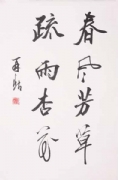 春风芳草
疏雨杏花